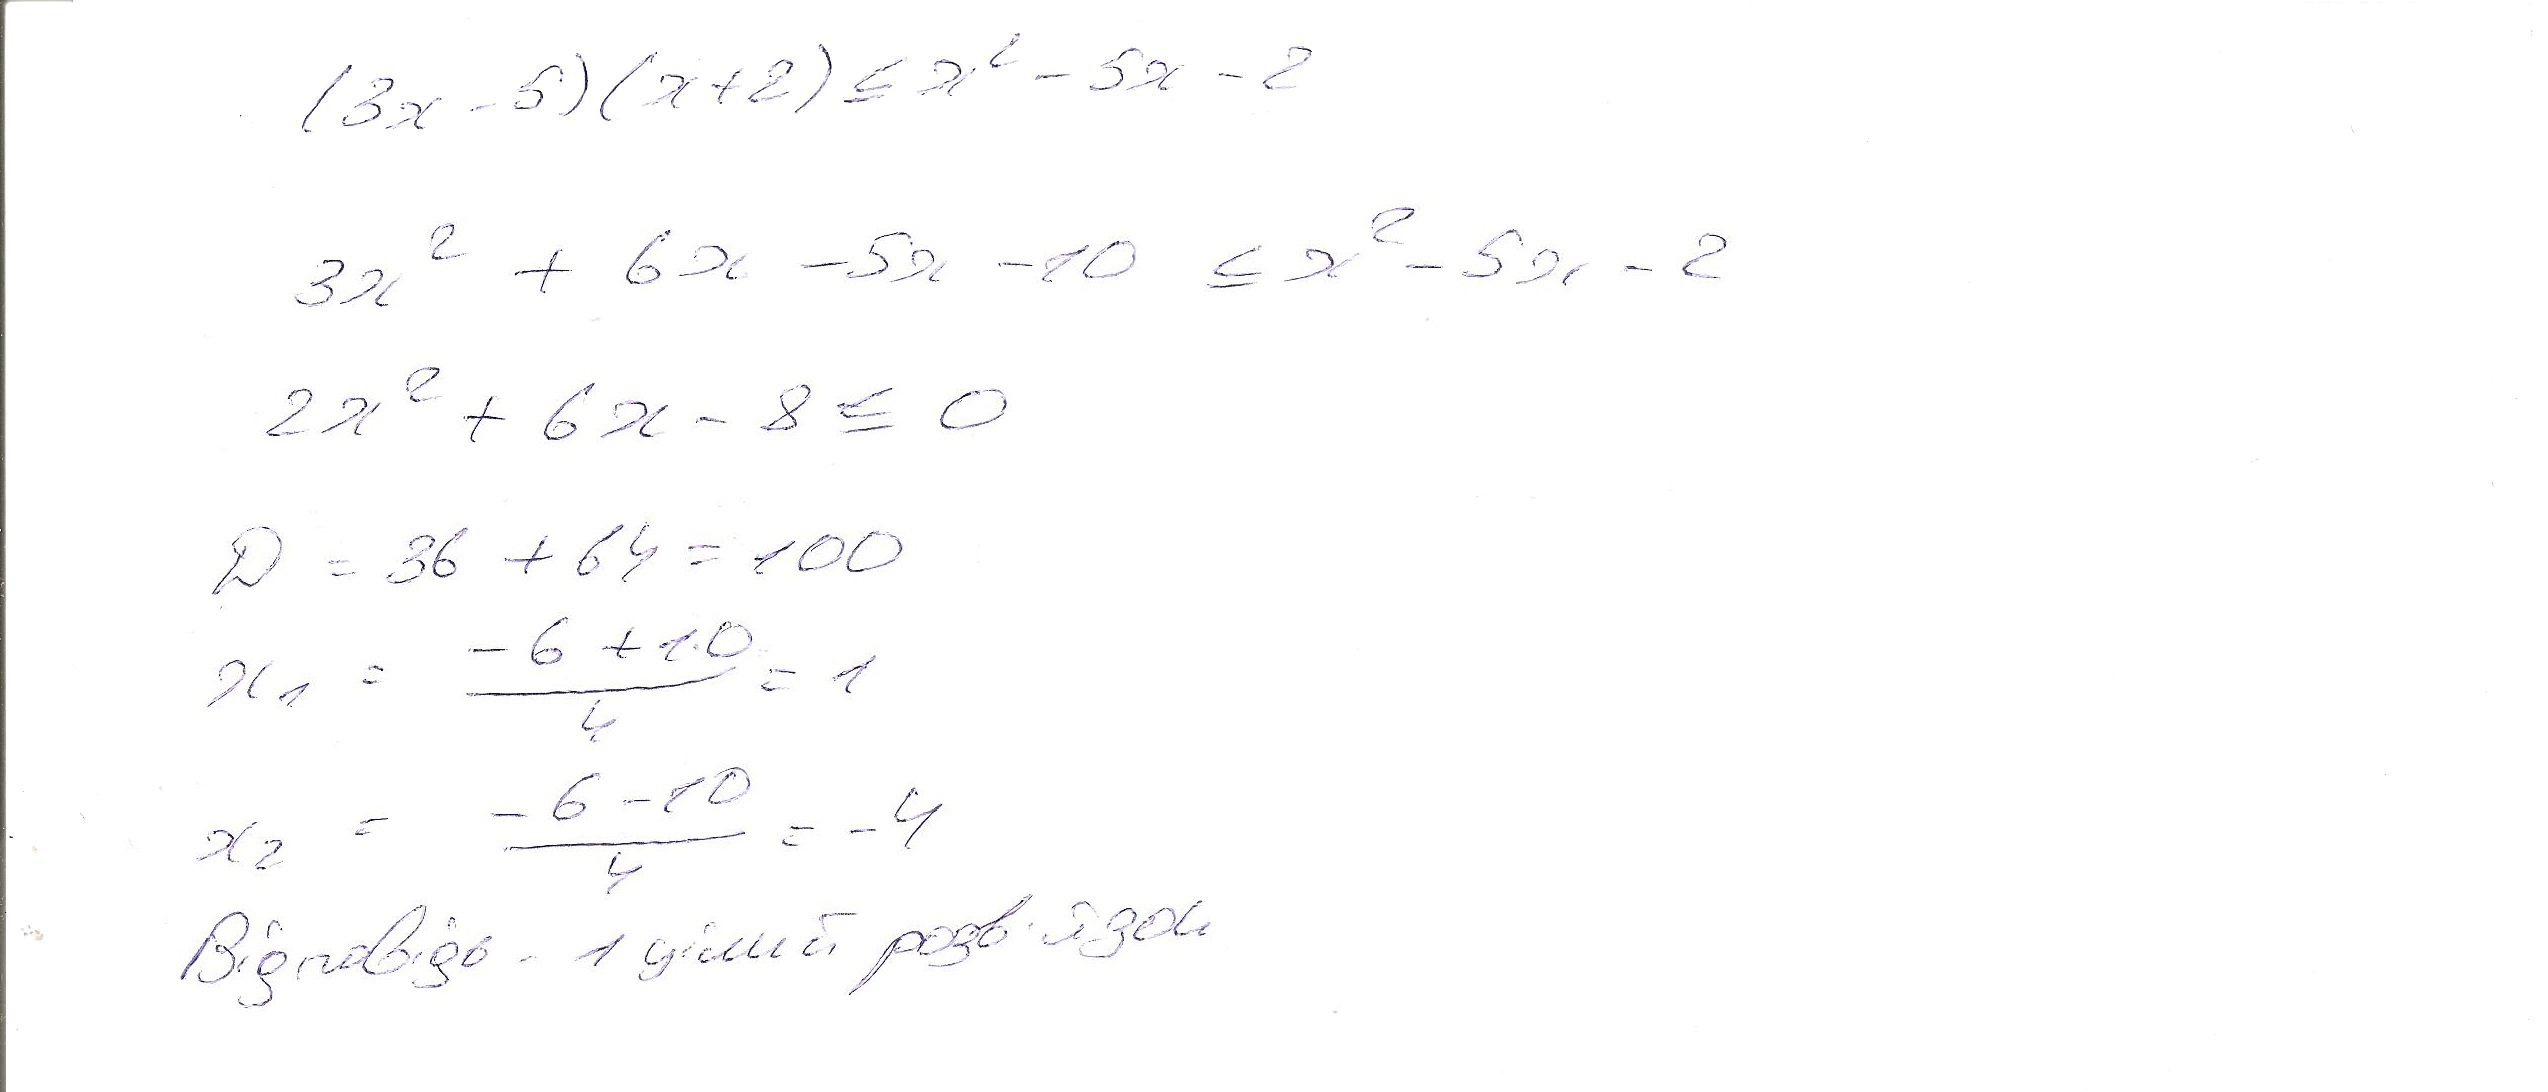 (3x - 5)(x + 2) ≤ x² - 5x - 2
3x² + 6x - 5x - 10 ≤ x² - 5x - 2
2x² + 6x - 8 ≤ 0
D = 36 + 64 = 100
x₁ = (-6 + 10)/4 = 1
x₂ = (-6 - 10)/4 = -4
Відповідь - 1 цілий розв'язок